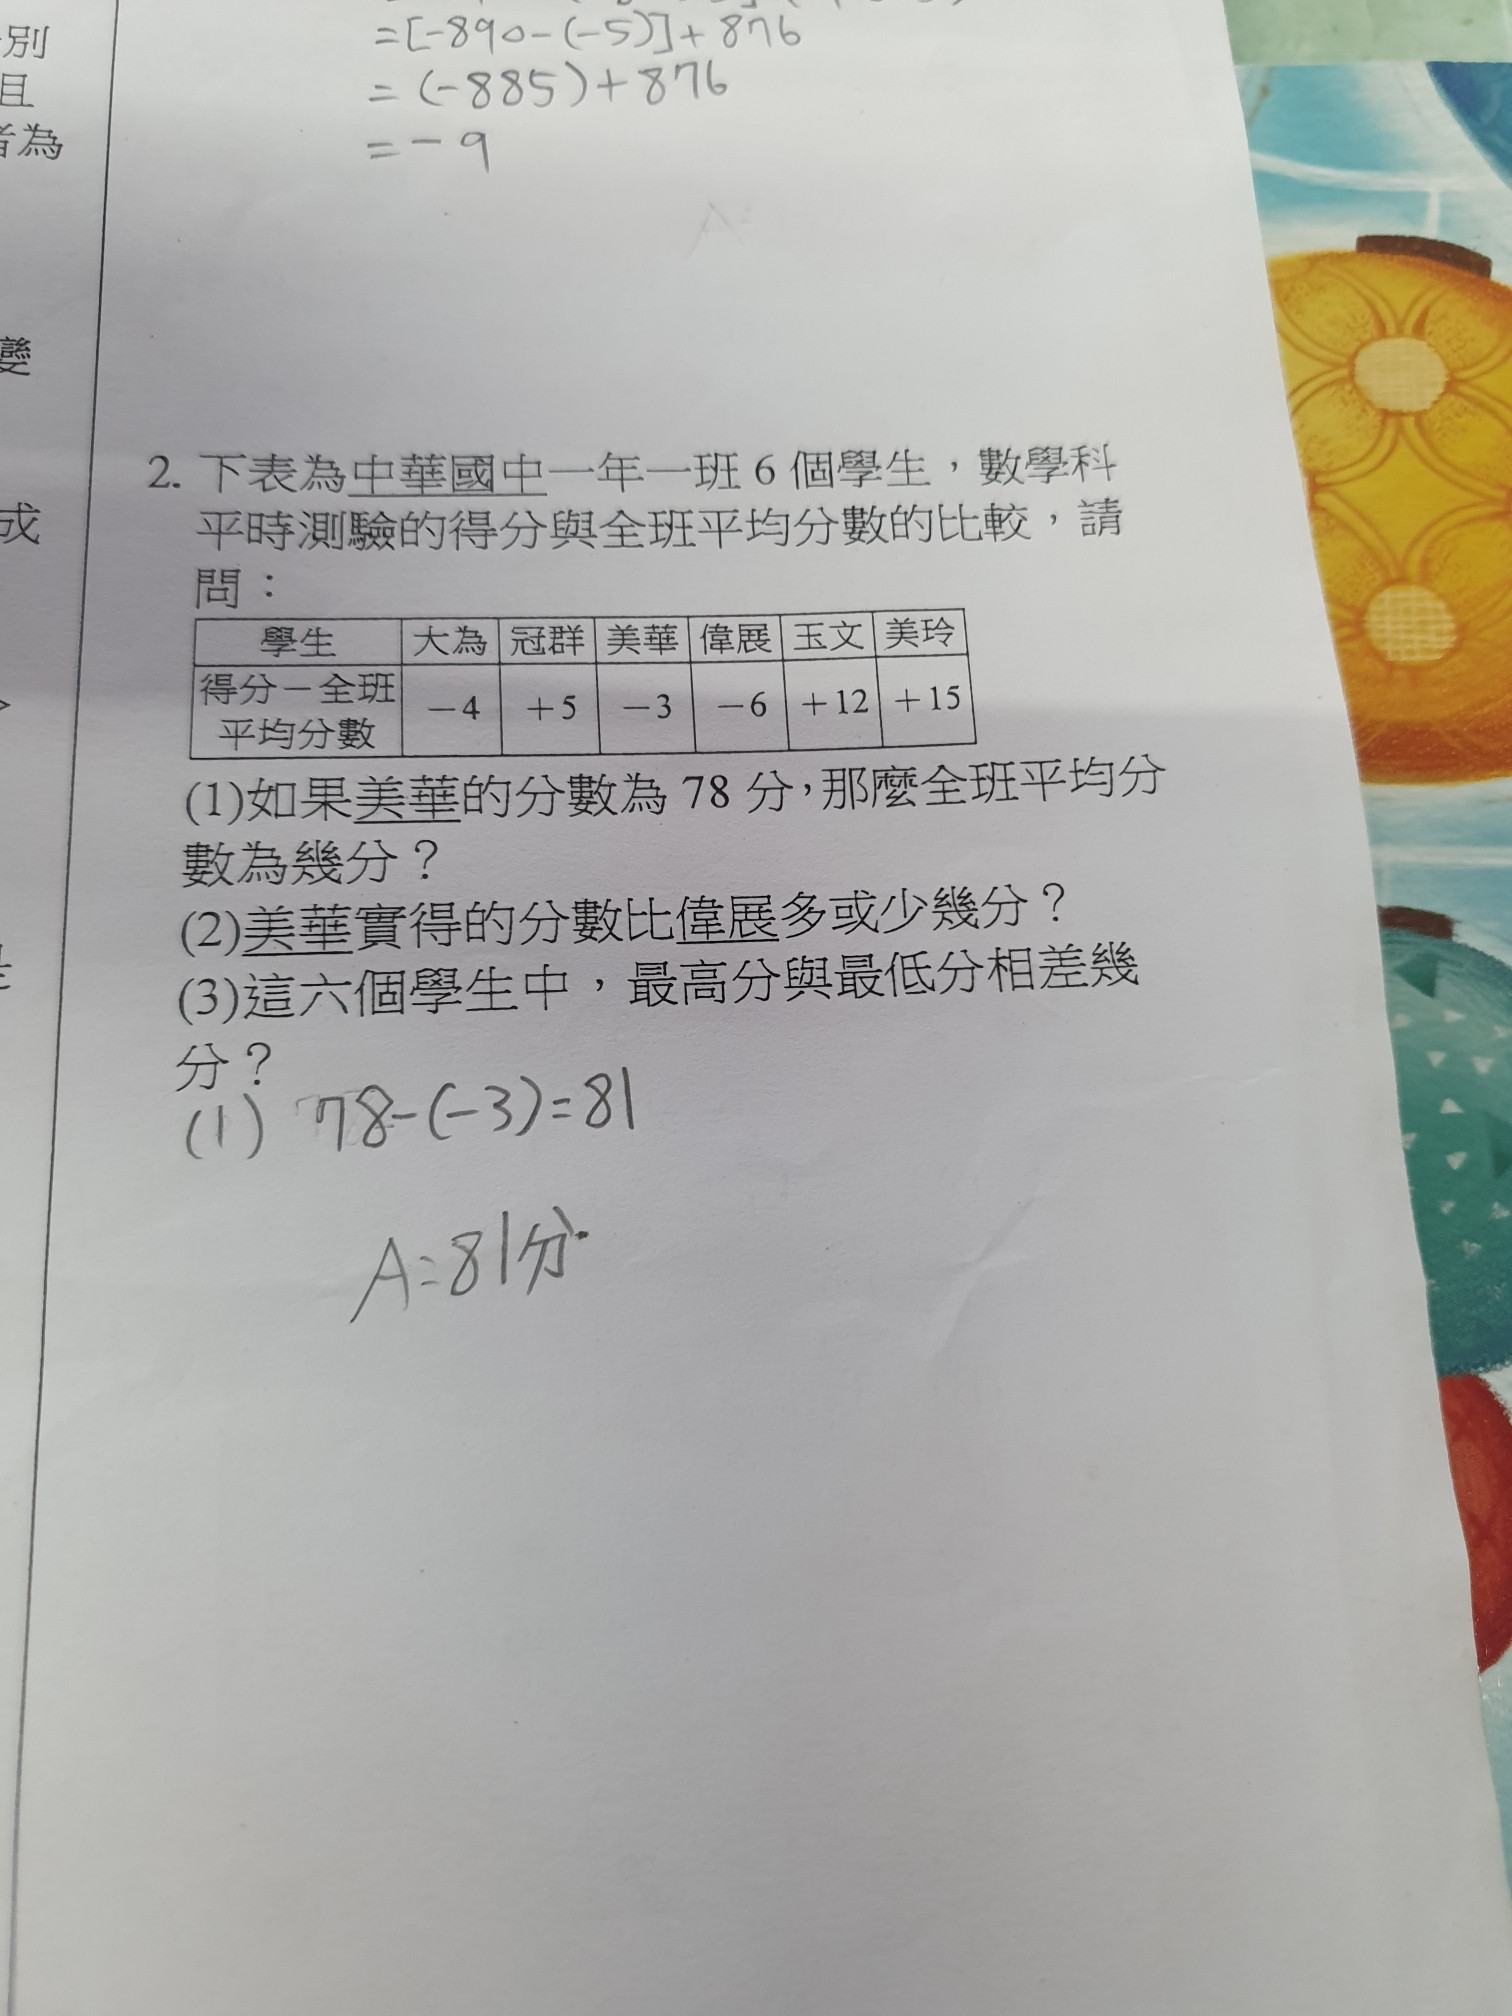 別
且
者為
變
成
=[-890-(-5)]+876
=(-885)+876
=-9
2. 下表為中華國中一年一班 6 個學生，數學科
平時測驗的得分與全班平均分數的比較，請
問：
學生 大為 冠群 美華 偉展 玉文 美玲
得分－全班平均分數 －4 ＋5 －3 －6 ＋12 ＋15
(1)如果美華的分數為 78 分，那麼全班平均分
數為幾分？
(2)美華實得的分數比偉展多或少幾分？
(3)這六個學生中，最高分與最低分相差幾
分？
(1) 78-(-3)=81
A=81分